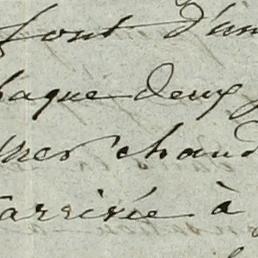 font d'un
haque deux
nes chaud
arrivée à